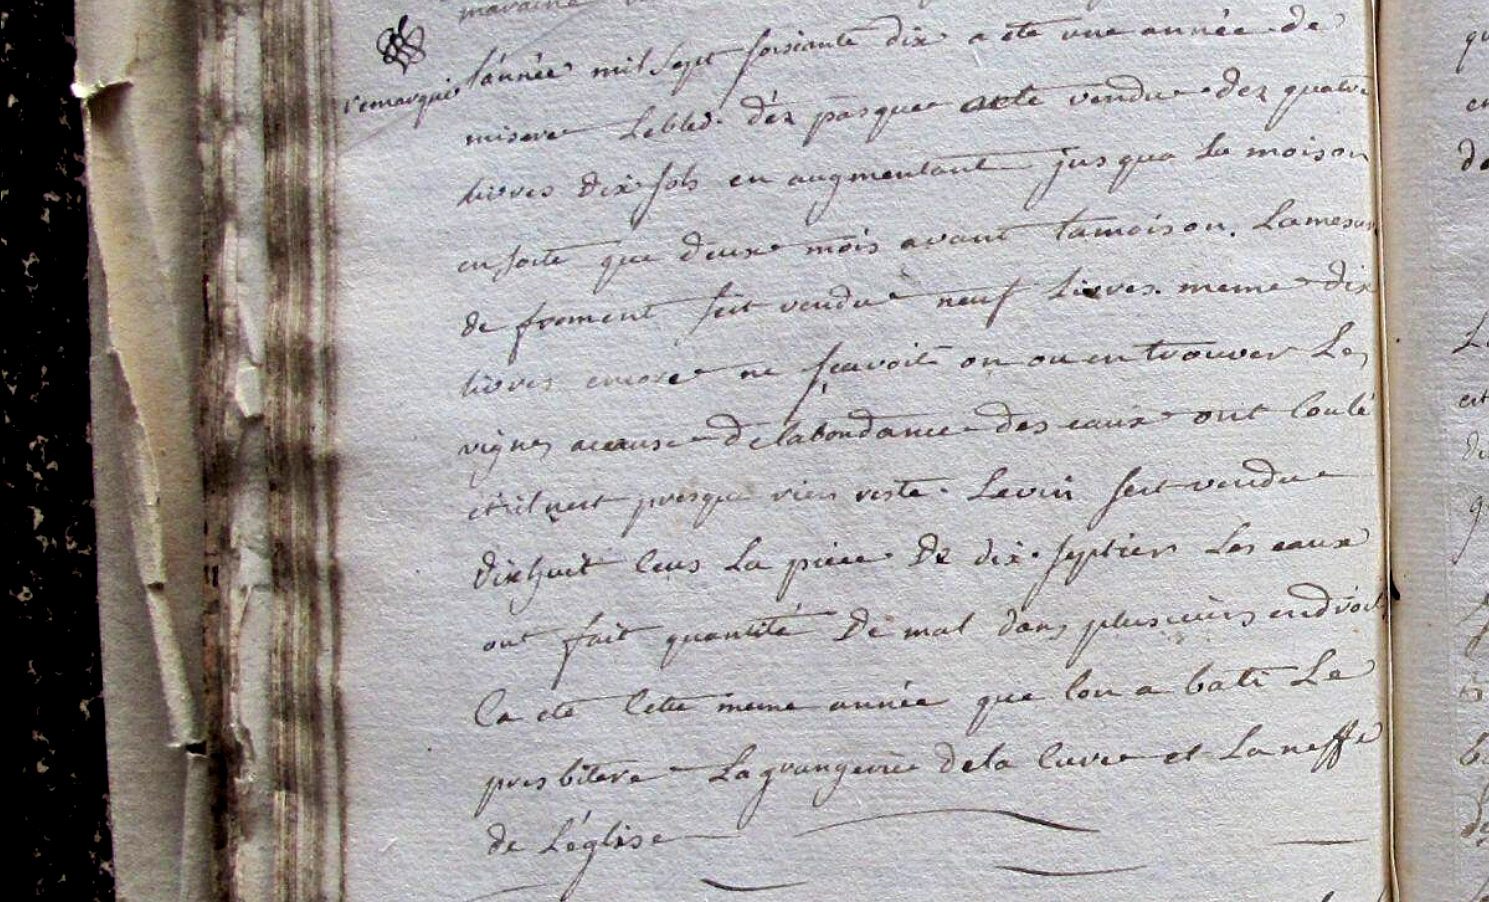 marraine
remarque
l'année mil sept soisiante dix a ete une année de
misere Lebled déz pasque aete vendu dez quatre
livres dix sols en augmentant jusqua La moison
ensorte que deux mois avant lamoison. Lamesure
de froment fut vendue neuf Livres. meme dix
livres encore ne scavoit on ou en trouver Les
vignes accause delabondance des eaux ont coulé
et il nest presque rien resté. Levin fut vendu
dixhuit ecus La piece de dix septiers Les eaux
ont fait quantité de mal dans plusieurs endroit
ca été cette meme année que lon a bati Le
presbitere Lagrangerie dela cure et La neffe
de L'église